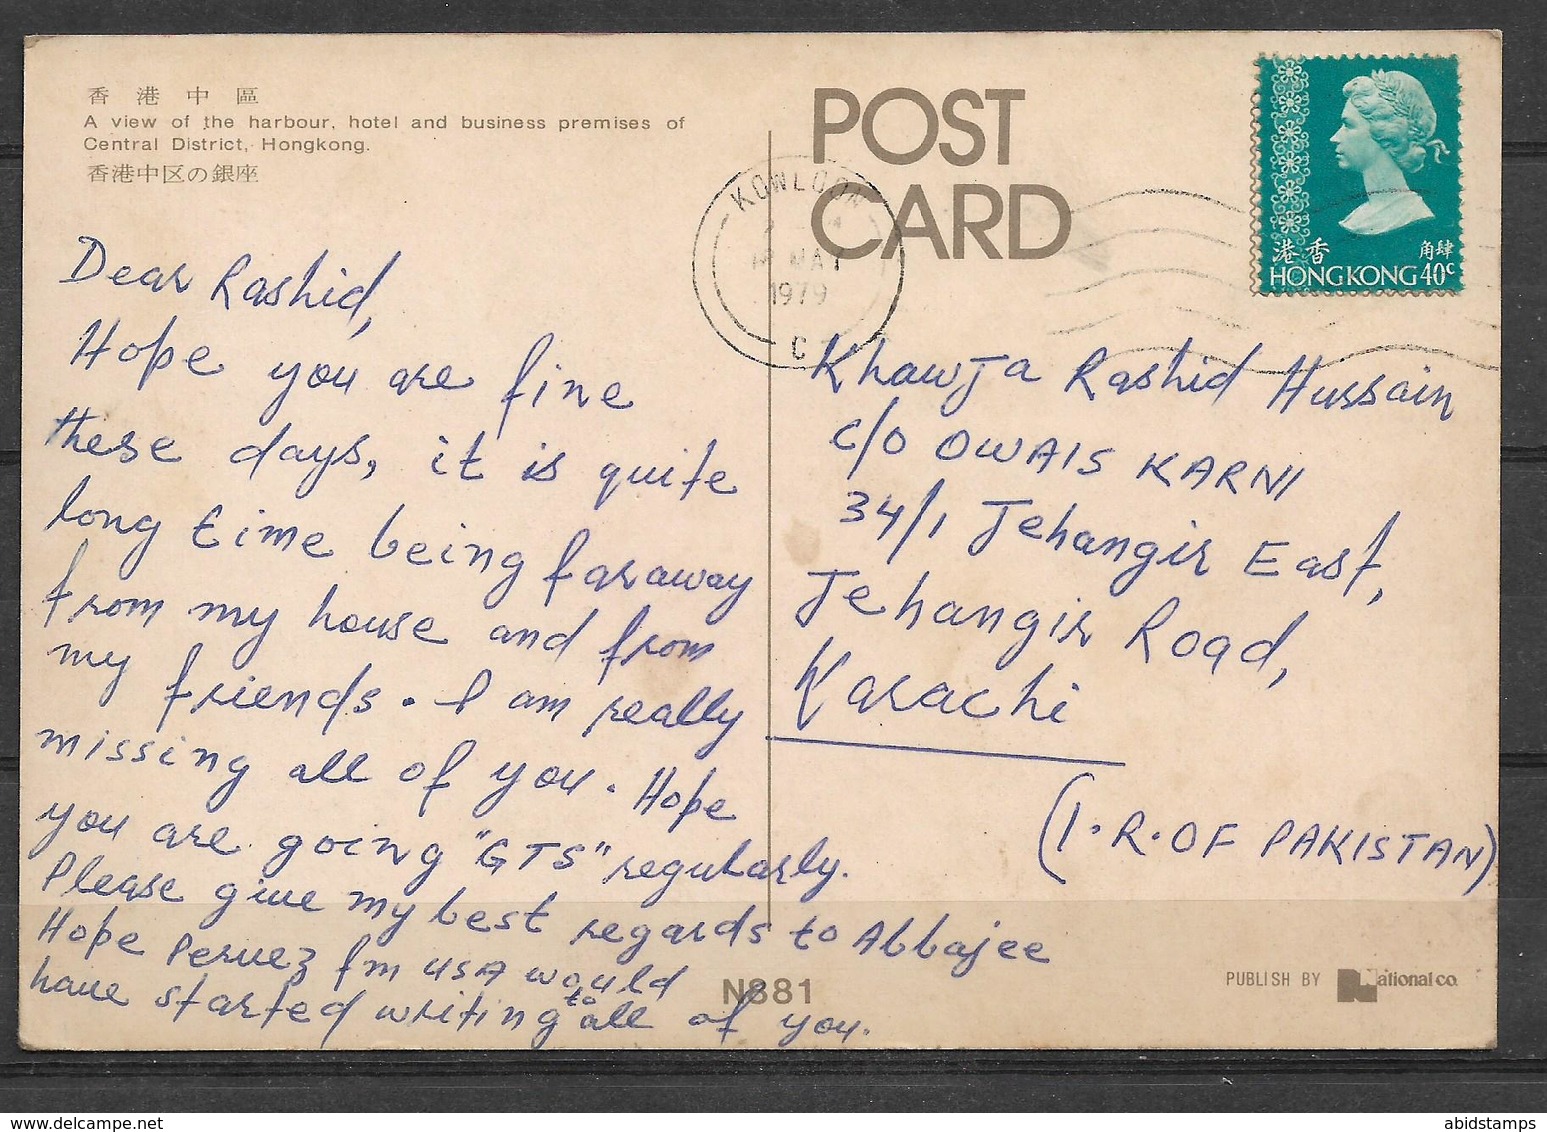 香港中區
A view of the harbour, hotel and business premises of
Central District, Hongkong.
香港中区の銀座
POST
CARD
KOWLOON
MAY
1979
C
港香
角肆
HONG KONG 40c
Dear Rashid,
Hope you are fine
these days, it is quite
long time being faraway
from my house and from
my friends. I am really
missing all of you. Hope
you are going "GTS" regularly.
Please give my best regards to Abbajee
Hope Pervez fm USA would
have started writing to all of you.
Khawja Rashid Hussain
c/o OWAIS KARNI
34/1 Jehangir East,
Jehangir Road,
Karachi
(I.R.OF PAKISTAN)
N881
PUBLISH BY National co.
abidstamps